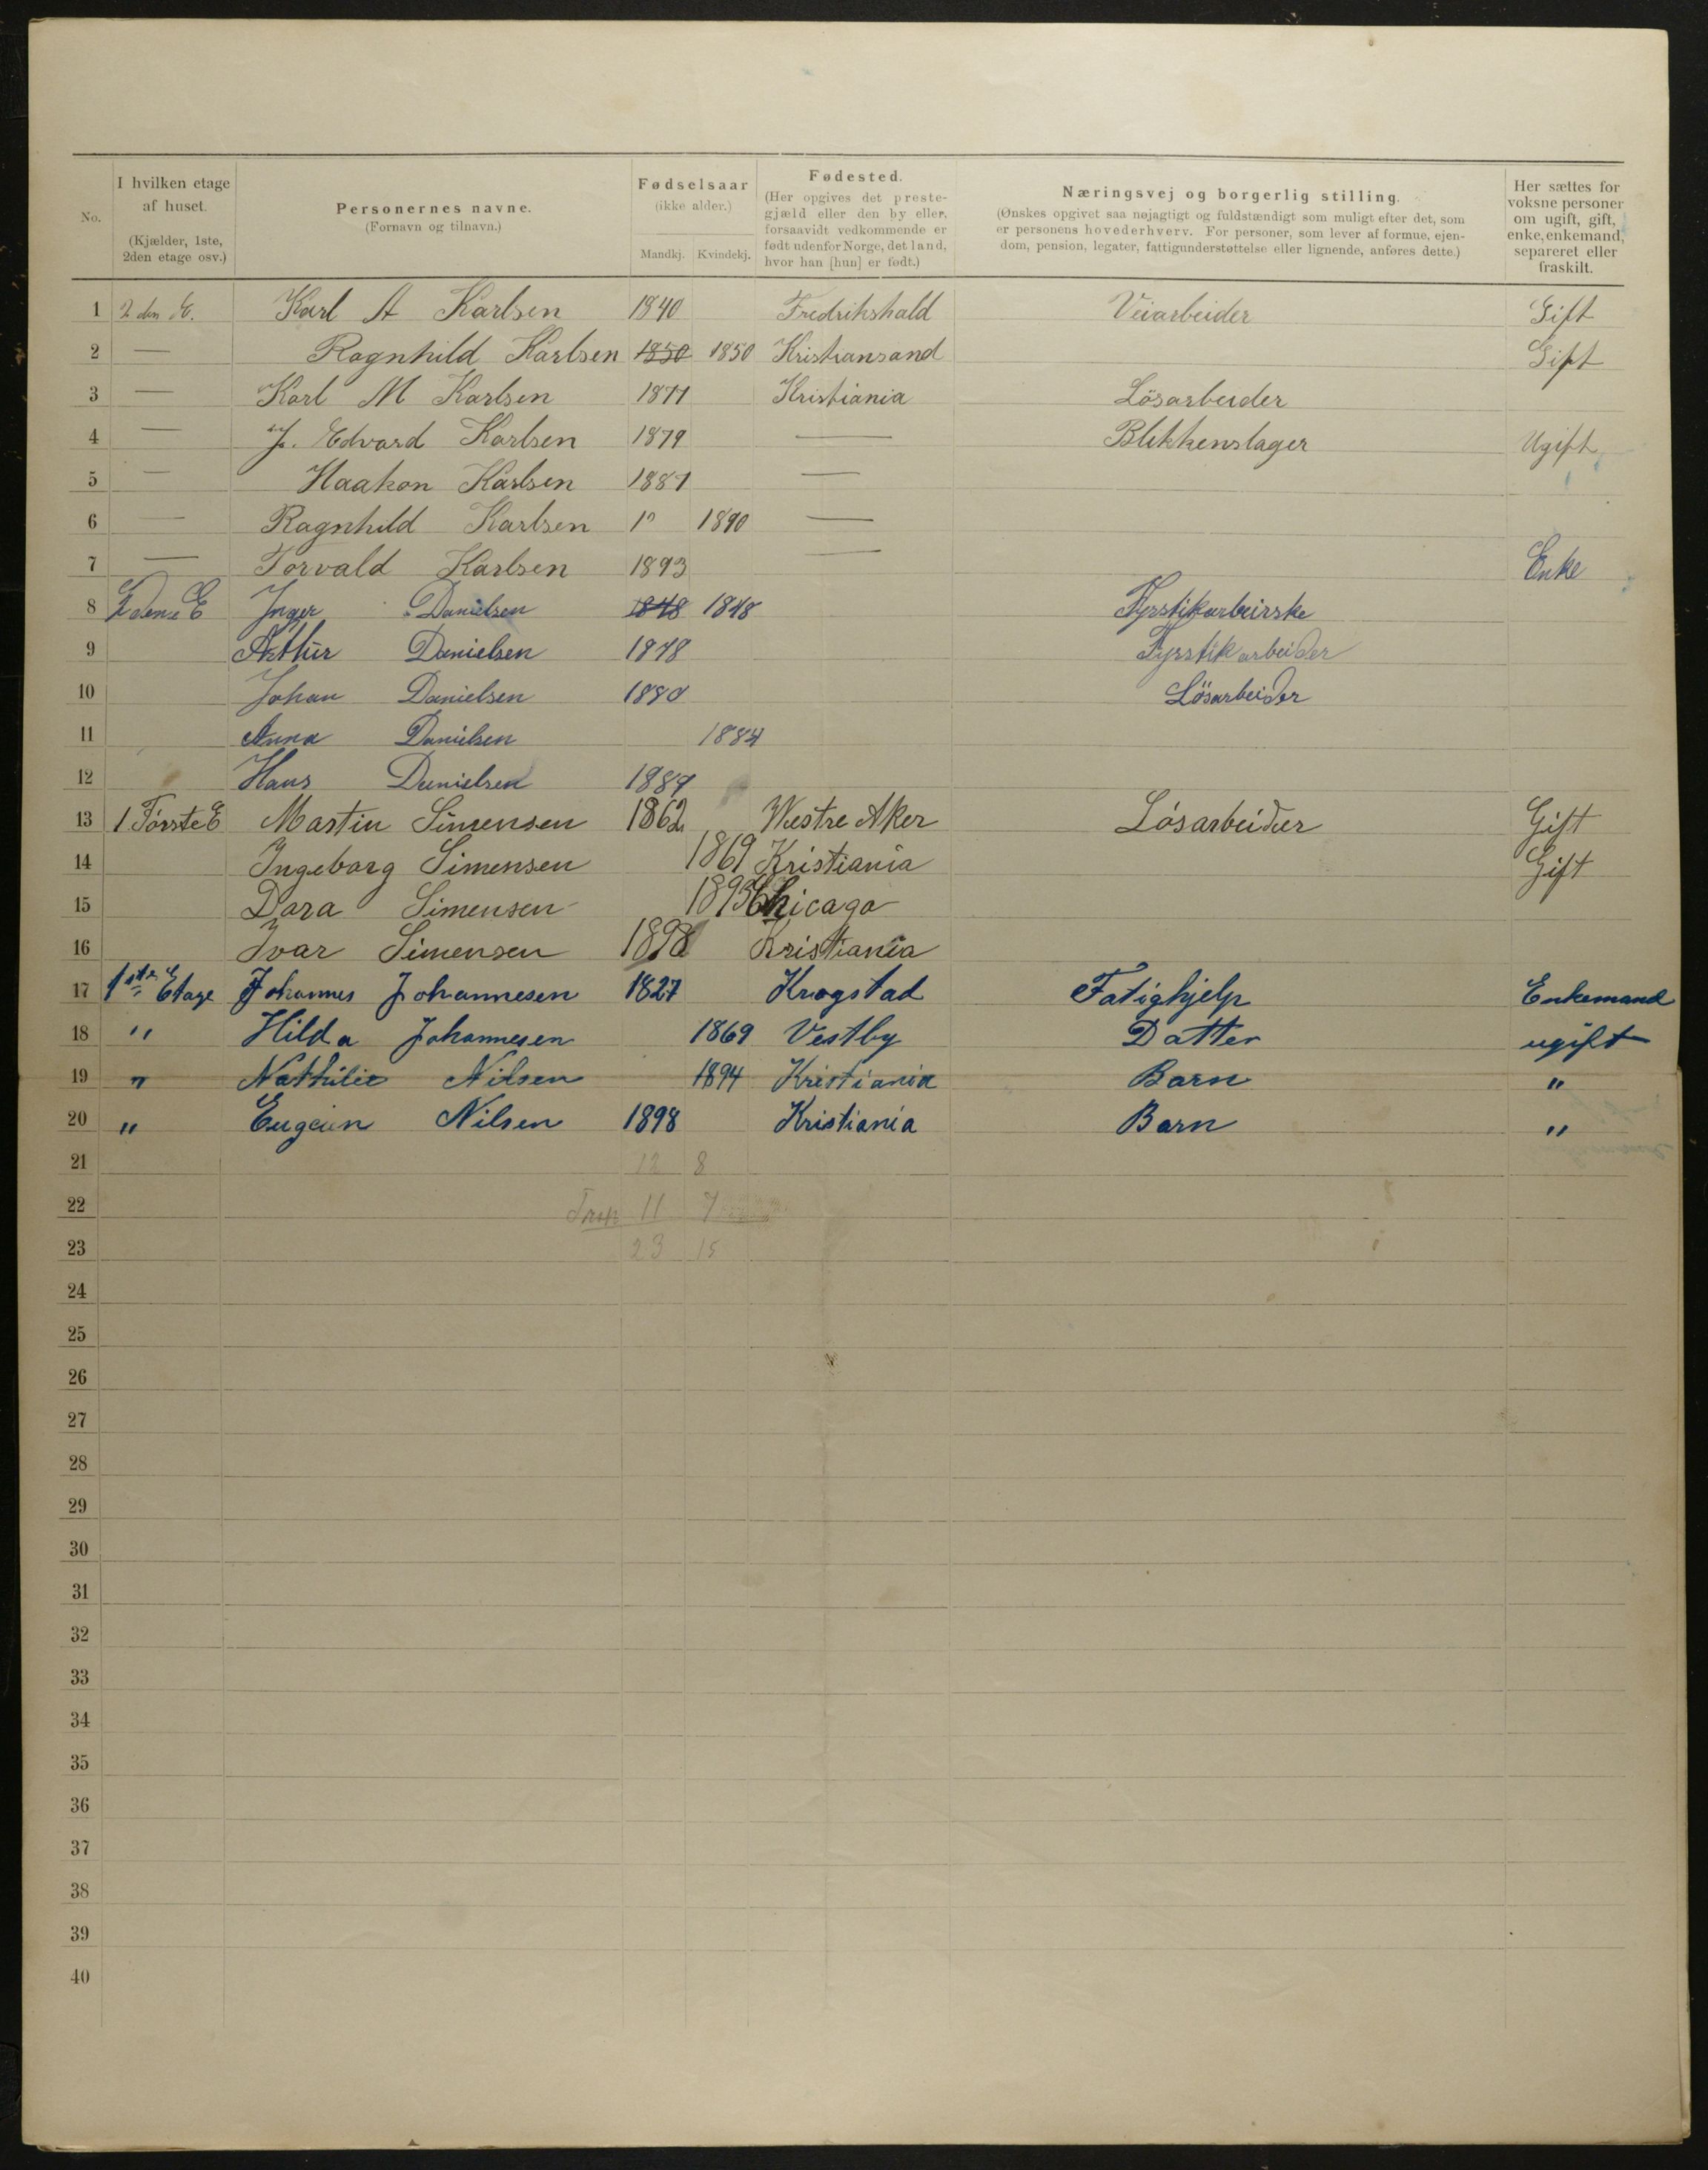 No. I hvilken etage af huset. (Kjælder, 1ste, 2den etage osv.) Personernes navne. (Fornavn og tilnavn.) Fødselsaar (ikke alder.) Mandkj. Kvindekj. Fødested. (Her opgives det prestegjæld eller den by eller, forsaavidt vedkommende er født udenfor Norge, det land, hvor han [hun] er født.) Næringsvej og borgerlig stilling. (Ønskes opgivet saa nøjagtigt og fuldstændigt som muligt efter det, som er personens hovederhverv. For personer, som lever af formue, ejendom, pension, legater, fattigunderstøttelse eller lignende, anføres dette.) Her sættes for voksne personer om ugift, gift, enke, enkemand, separeret eller fraskilt.
1 2 den E. Karl A Karlsen 1840 Fredrikshald Veiarbeider Gift
2 — Ragnhild Karlsen 1850 1850 Kristiansand Gift
3 — Karl M Karlsen 1877 Kristiania Lösarbeider
4 — J. Edvard Karlsen 1879 — Blikkenslager Ugift
5 — Haakon Karlsen 1887 —
6 — Ragnhild Karlsen 1890 —
7 — Torvald Karlsen 1893 — Enke
8 2 dene E Inger Danielsen 1848 1848 Fyrstikarbeirske
9 Arthur Danielsen 1878 Fyrstikarbeider
10 Johan Danielsen 1880 Lösarbeider
11 Anna Danielsen 1884
12 Hans Danielsen 1887
13 1 Første E Martin Simensen 1862 Westre Aker Løsarbeider Gift
14 Ingeborg Simensen 1869 Kristiania Gift
15 Dara Simensen 1893 Chicago
16 Ivar Simensen 1898 Kristiania
17 1ste Etage Johannes Johannesen 1827 Krogstad Fatighjelp Enkemand
18 " Hilda Johannesen 1869 Vestby Datter ugift
19 " Nathilie Nilsen 1894 Kristiania Barn "
20 " Eugein Nilsen 1898 Kristiania Barn "
21 12 8
22 11 7
23 23 15
24
25
26
27
28
29
30
31
32
33
34
35
36
37
38
39
40